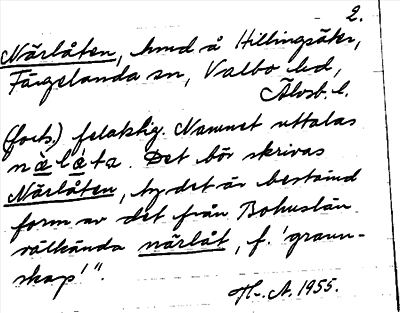 2.
Närlåten, hmd å Hillingsäkr,
Färgelanda sn, Valbo hd,
Älvsb. l.
(forts.) felaktig. Namnet uttalas
næ̀låta. Det bör skrivas
Närlåten, ty det är bestämd
form av det från Bohuslän
välkända närlåt, f. 'grann-
skap'".
Hj. A. 1955.